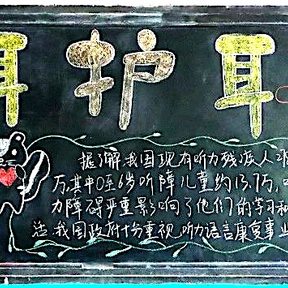 耳护耳
据了解我国现有听力残疾人
万,其中0至6岁听障儿童约13.7万,
力障碍严重影响了他们的学习和
活 我国政府十分重视 听力语言康复事业